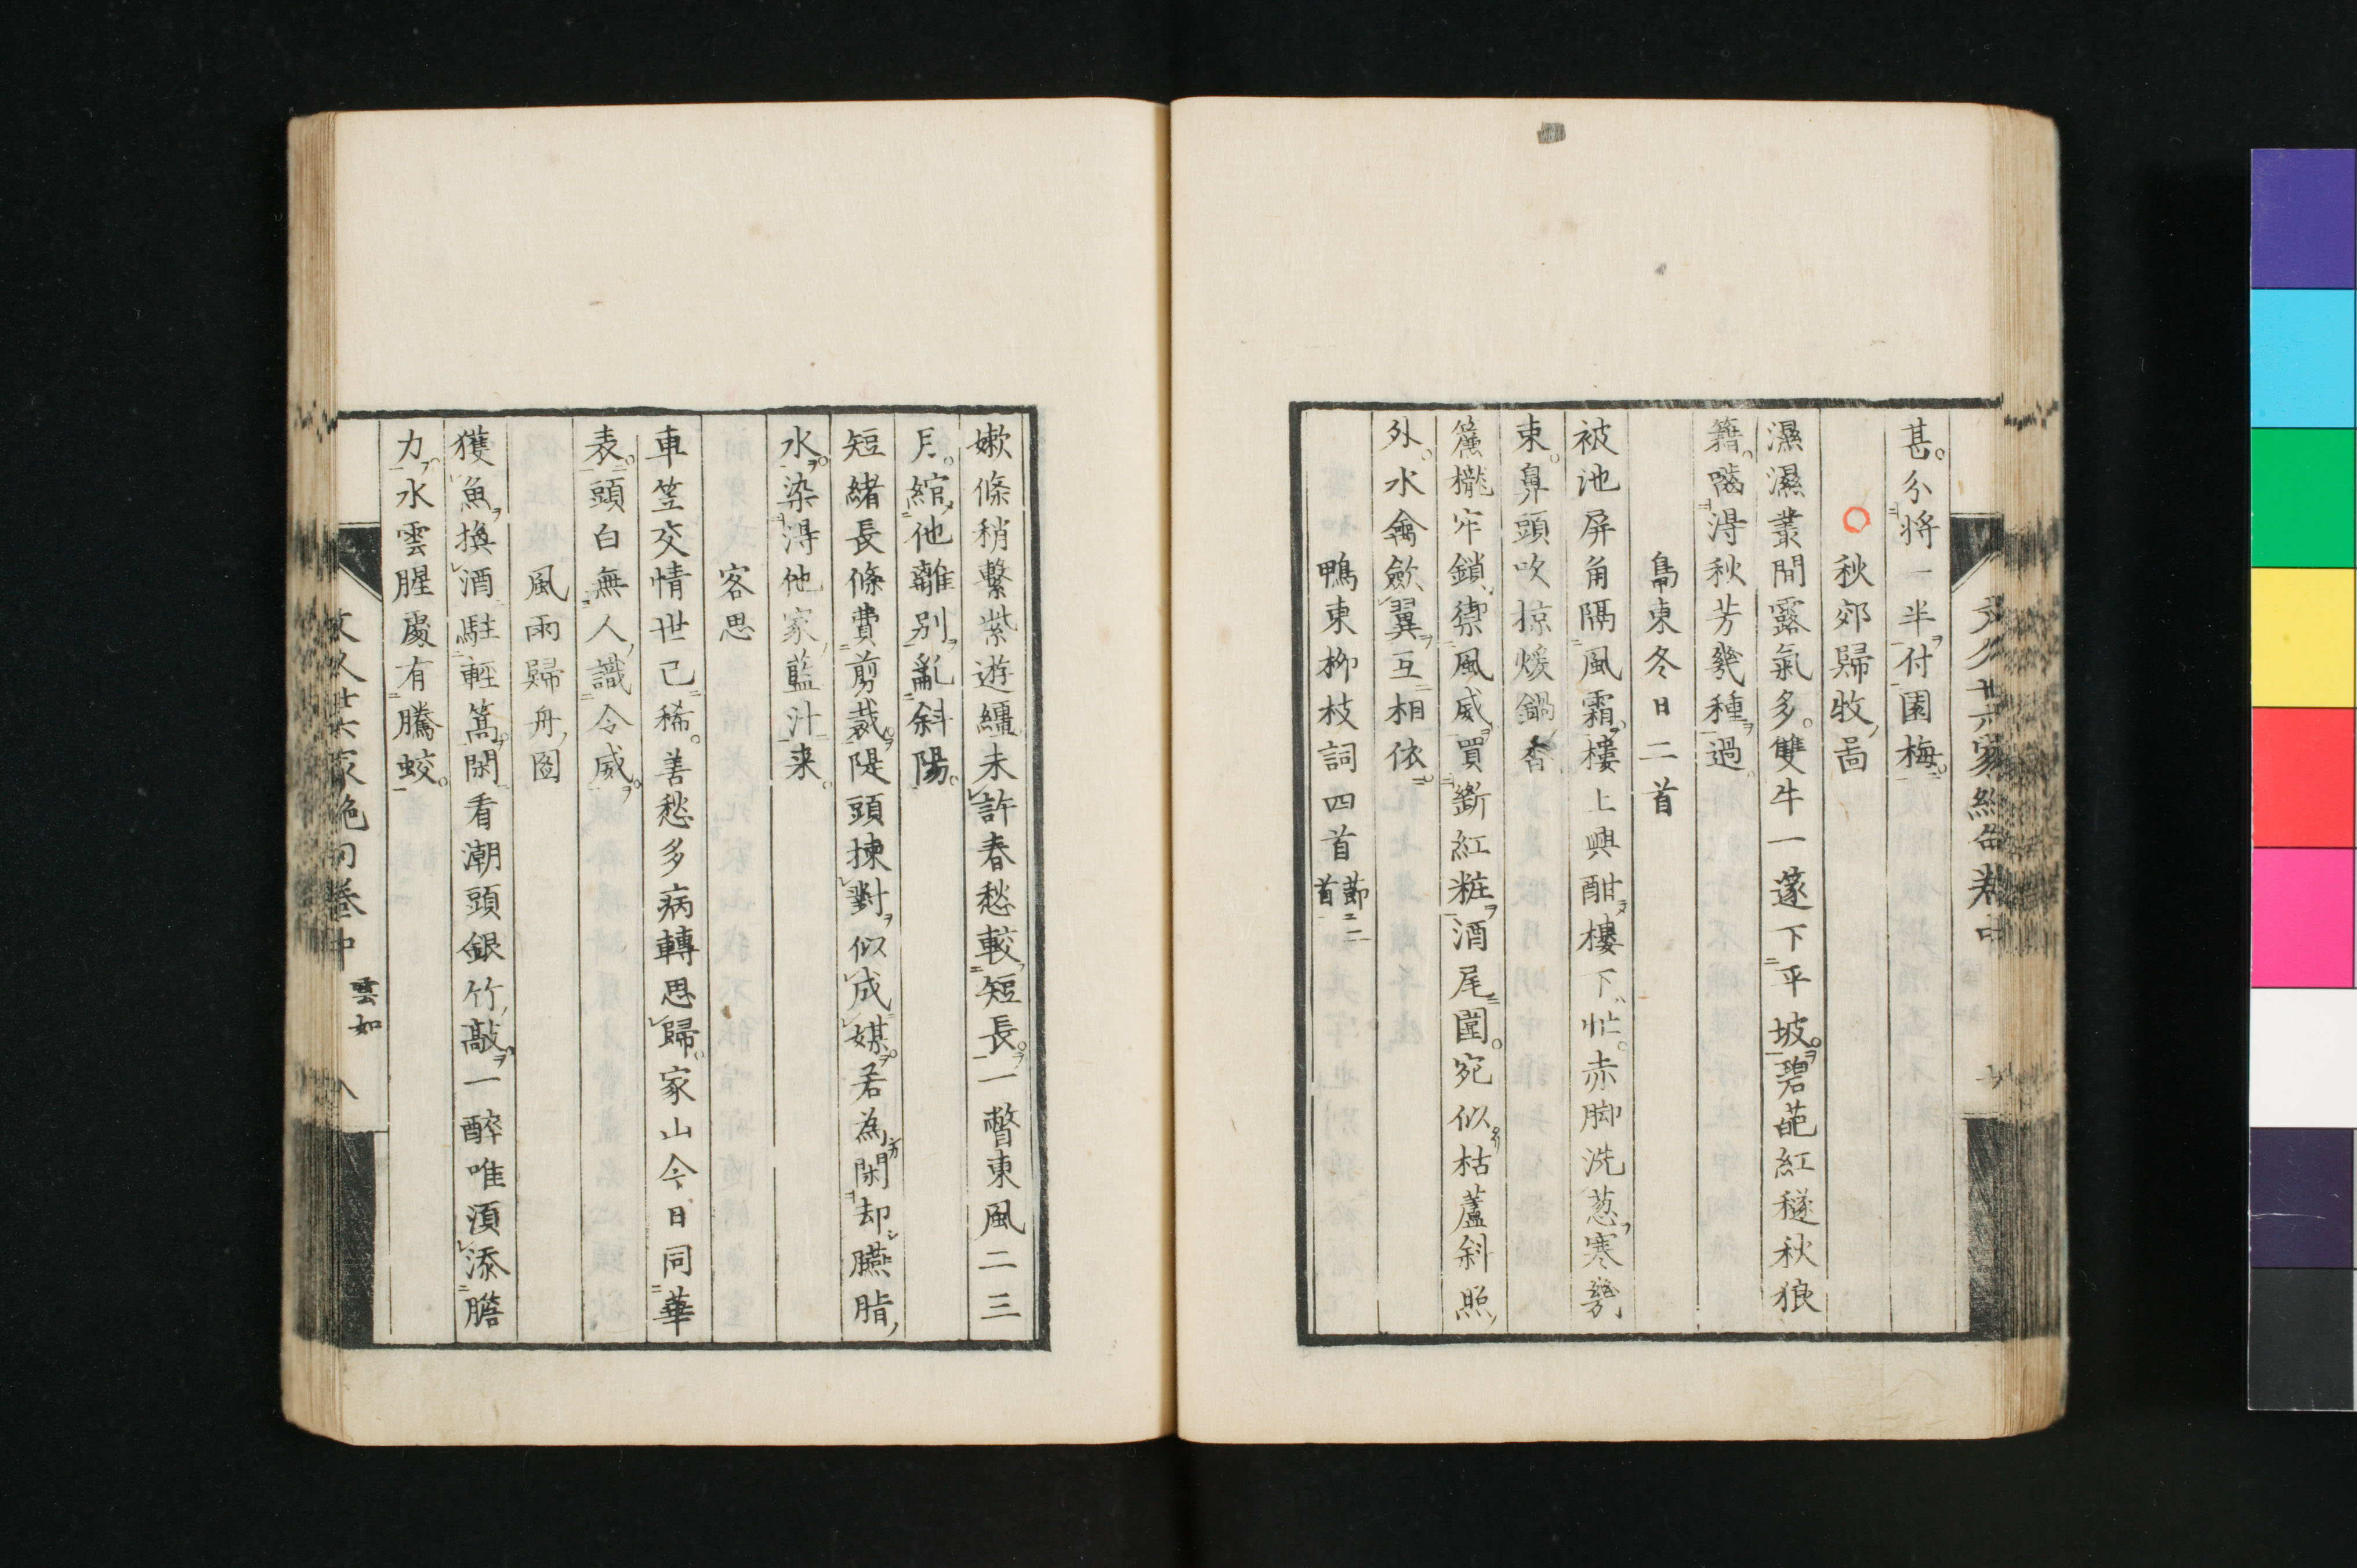 甚分将一半付園梅
秋郊歸牧啚
濕濕叢間露氣多雙牛一邃下平坡碧葩紅穟秋狼
籍嚙淂秋芳幾種過
鳧東冬日二首
被池屏角隔風霜樓上興酣樓下忙赤脚洗葱寒幾
束鼻頭吹掠煖鍋香
簾櫳牢鎖禦風威買斷紅粧酒尾圍宛似枯蘆斜照
外水禽歛翼互相依
鴨東柳枝詞四首節二首
嫩條稍繫紫遊繮未許春愁較短長一瞥東風二三
月綰他離別亂斜陽
短緒長條費剪裁隄頭揀對似成媒若為閑却臙脂
水染淂他家藍汁来
客思
車笠交情世已稀善愁多病轉思歸家山今日同華
表頭白無人識令威
風雨歸舟圖
獲魚換酒駐輕篙閑看潮頭銀竹敲一醉唯湏添膽
力水雲腥處有騰蛟
文久廿六家絶句巻中 雲如 八